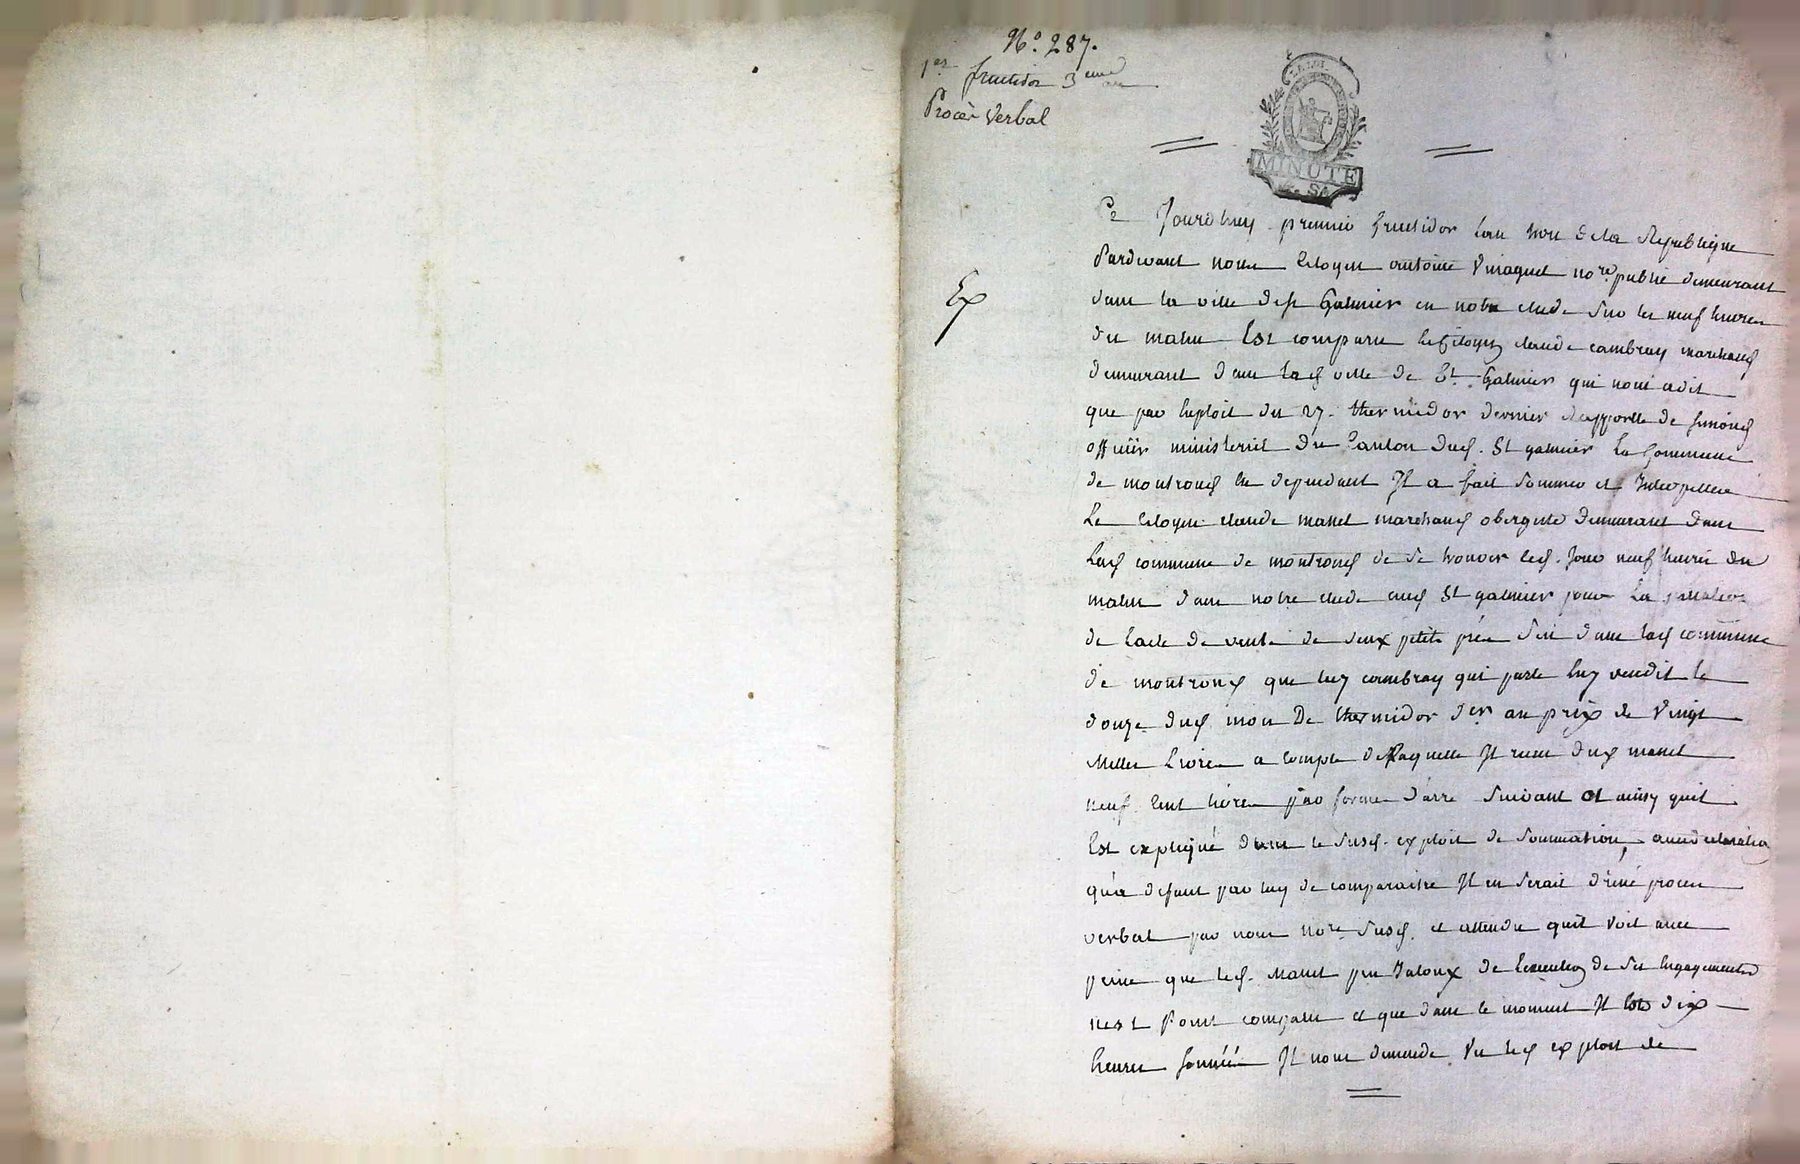 N.o 287.
1er fructidor 3eme an
Procès Verbal
LA LOI
MINUTE
Ex
Ce Jourdhuy premier fructidor lan trois dela République
Pardevant nous Citoyen antoine Viraquet no.re public demeurant
dans la ville de st Galmier en notre etude sur les neuf heures
du matin Est comparu le Citoyen claude cambray marchand
demeurant dans lad ville de St. Galmier qui nous adit
que par Exploit du 27. thermidor dernier Rapporté de Simond
officier ministeriel du Canton dud. St galmier La Commune
de montrond En dependant Il a fait sommer et Interpeller
Le Citoyen claude manet marchand obergiste demeurant dans
Lad commune de montrond de se trouver led. Jour neuf heures du
matin dans notre etude aud St galmier pour La passation
de Lacte de vente de deux petits prés Sis dans lad commune
de montrond que luy cambray qui parle luy vendit le
douze dud. mois De thermidor der au prix de Vingt
Milles Livres a compte de Laquelle Il recu dud manet
neuf Cent livres par forme d'arre Suivant et ainsy quil
Est expliqué dans le susd. exploit de Sommation, avec declaration
qu'a defaut par luy de comparaitre Il en serait dréssé proces
verbal par nous No.re susd. et attendu quil Voit avec
peine que led. Manet peu Jaloux de Lexecution de Ses Engagements
nest Point comparu et que dans le moment Il Est dix
heures sonnéés Il nous demande Vu led exploit de